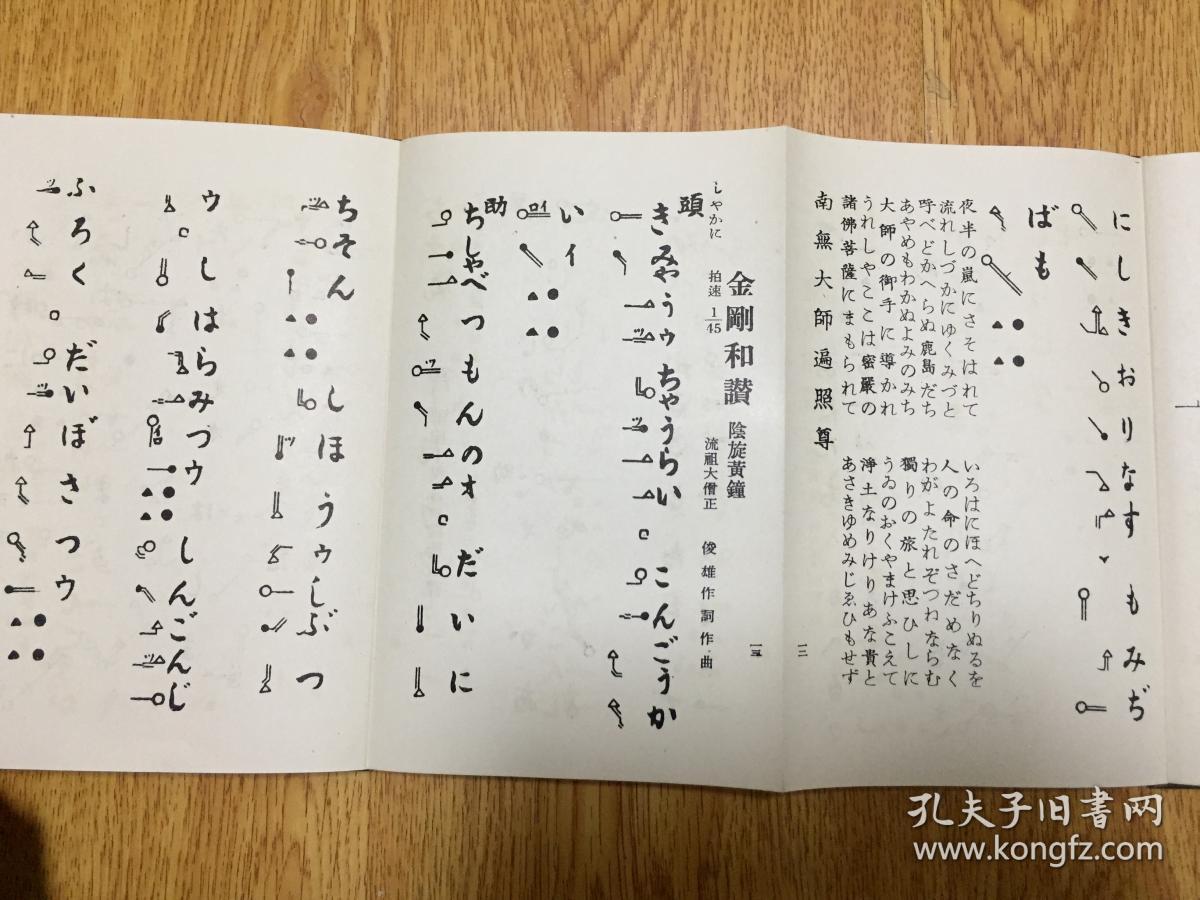 にしきおりなすもみぢ
ばも
夜半の嵐にさそはれて いろはにほへどちりぬるを
流れしづかにゆくみづと 人の命のさだめなく
呼べどかへらぬ鹿島だち わがよたれぞつねならむ
あやめもわかぬよみのみち 獨りの旅と思ひしに
大師の御手に導かれ うゐのおくやまけふこえて
うれしやここは密嚴の 淨土なりけりあな貴と
諸佛菩薩にまもられて あさきゆめみじゑひもせず
南無大師遍照尊
三
金剛和讃 陰旋黃鐘
しやかに 拍速 1/45 流祖大僧正 俊雄作詞作曲
頭
きみやうゥちゃうらいこんごうか
いィ
ロイ
助
ちしゃべつもんのォだいに
ちそんしほうゥしぶつ
ゥしはらみつウしんごんじ
ふろくだいぼさつウ
孔夫子旧书网
www.kongfz.com